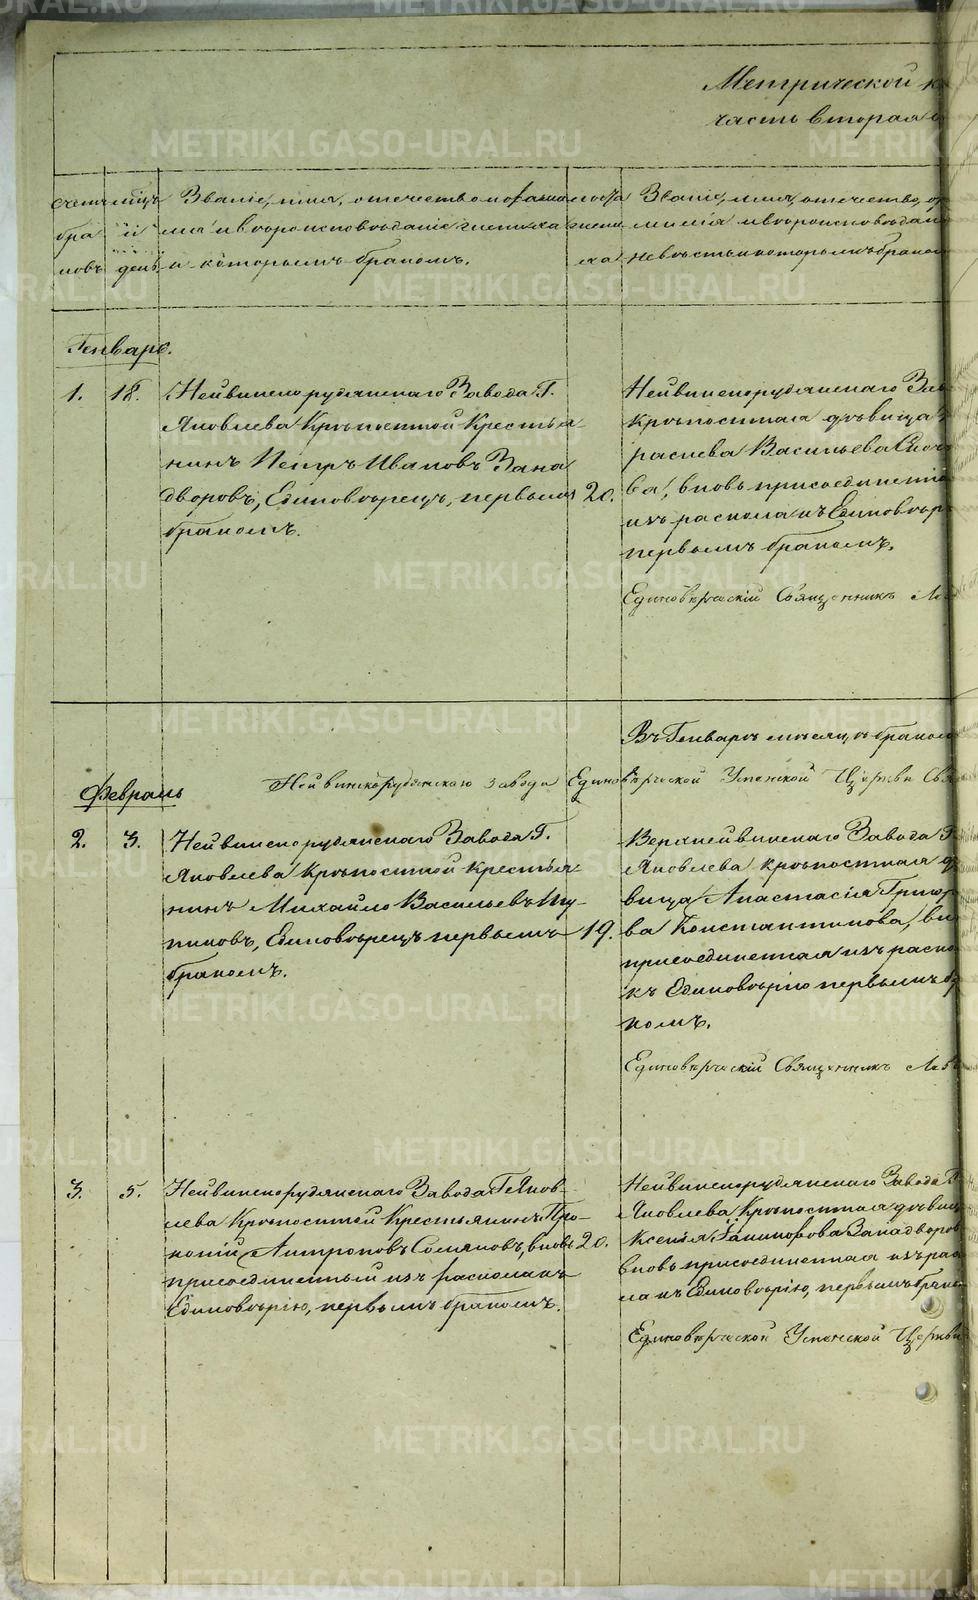 Метрической к
часть вторая о
счетъ
бра
ковъ
мѣцъ
и
день
Званіе, имя, отечество и фами
лія и вѣроисповѣданіе жениха
и которымъ бракомъ.
лѣта
жени
ха
Званіе, имя, отечество, фа
милія и вѣроисповѣдан
невѣсты и которымъ браком
Генварь.
1.
18.
Нейвинскорудянскаго Завода Г.
Яковлева Крѣпостной Крестья-
нинъ Петръ Ивановъ Запа
дворовъ, Единовѣрецъ, первымъ
бракомъ.
20.
Нейвинскорудянскаго Зав
Крѣпостная дѣвица
Васильева
ва, вновь присоединенна
изъ раскола къ Единовѣр
первымъ бракомъ.
Единовѣрческій Священникъ
Въ Генварѣ мѣсяцѣ браком
Февраль
Нейвинскорудянскаго завода Единовѣрческой Успенской Церкви Свя
2.
3.
Нейвинскорудянскаго Завода Г.
Яковлева Крѣпостной крестья-
нинъ Михайло Васильевъ
Единовѣрецъ первымъ
бракомъ.
19.
Верхнейвинскаго Завода Г
Яковлева крѣпостная дѣ
вица Анастасія Григор
ва Константинова, вн
присоединенная изъ раско
къ Единовѣрію первымъ бр
комъ.
Единовѣрческій Священникъ
3.
5.
Нейвинскорудянскаго Завода Г. Яков-
лева Крѣпостной Крестьянинъ Про-
копій Антроповъ вновь
присоединенный изъ раскола къ
Единовѣрію, первымъ бракомъ.
20.
Нейвинскорудянскаго Завода Г
Яковлева Крѣпостная дѣвиц
Ксенія Западворов
вновь присоединенная изъ рас
ла къ Единовѣрію, первымъ брако
Единовѣрческой Успенской Церкви
METRIKI.GASO-URAL.RU